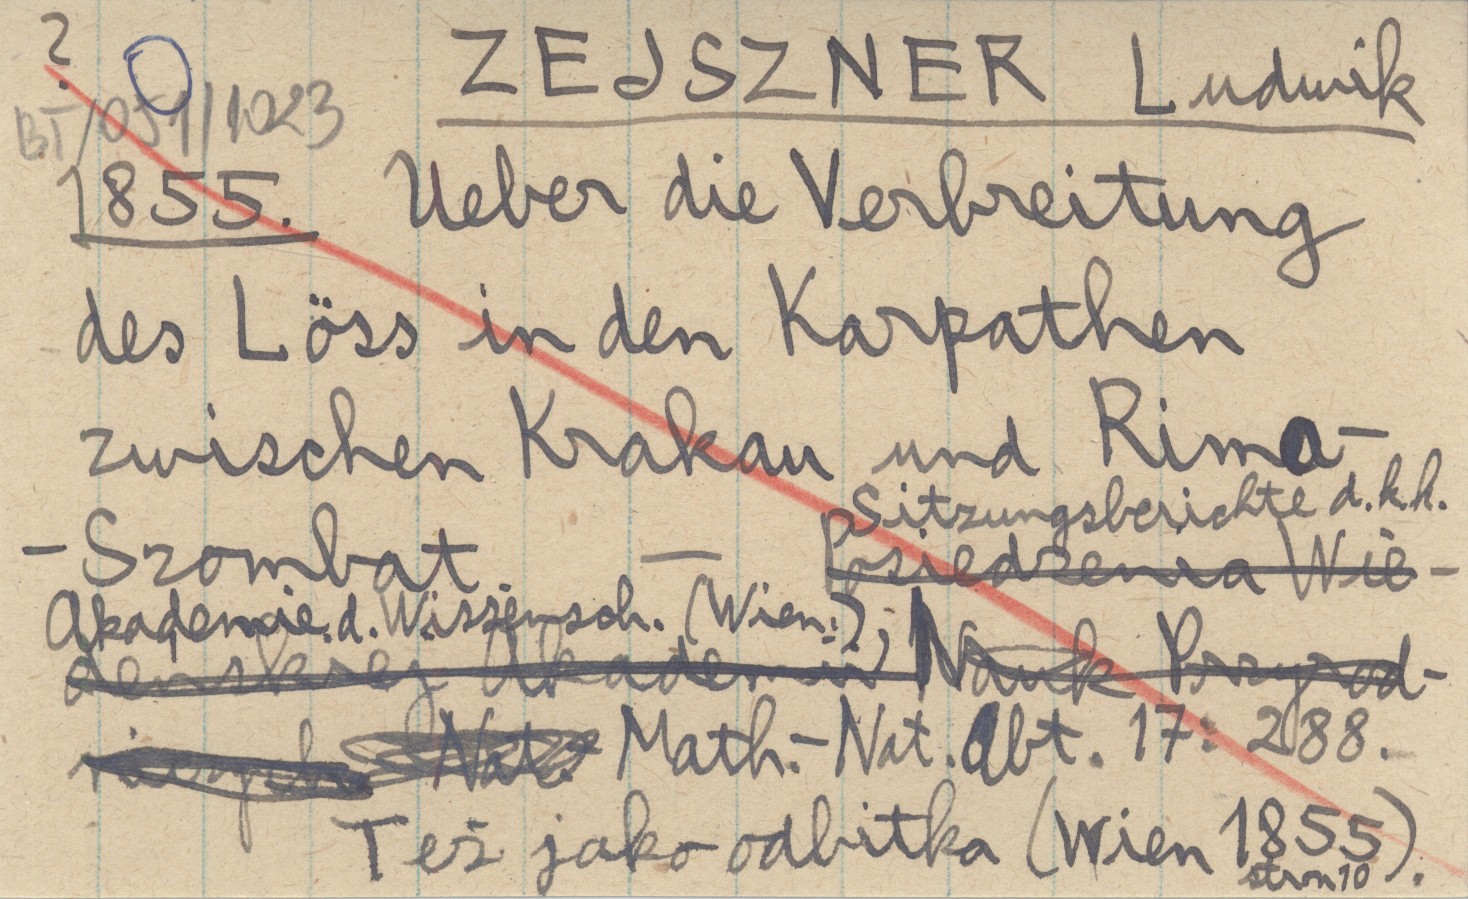 ?
ZEJSZNER Ludwik
BT/051/1023
1855. Ueber die Verbreitung
des Löss in den Karpathen
zwischen Krakau und Rima-
-Szombat. — Sitzungsberichte d. k. k.
posiedzenia Wie-
Akademie d. Wissensch. (Wien.),
deńskiej Akademii Nauk Przyrod-
niczych Nat. Math.-Nat. Abt. 17: 288.
Też jako odbitka (Wien 1855).
stron 10